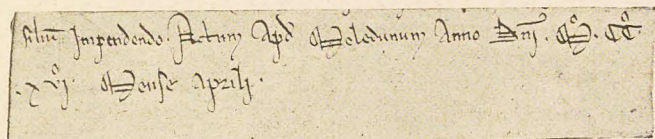 siliū Impendendo Actum Apd̄ Meledunum Anno Dnī. Mº. CCº.
. xvjº. Mense Aprili.